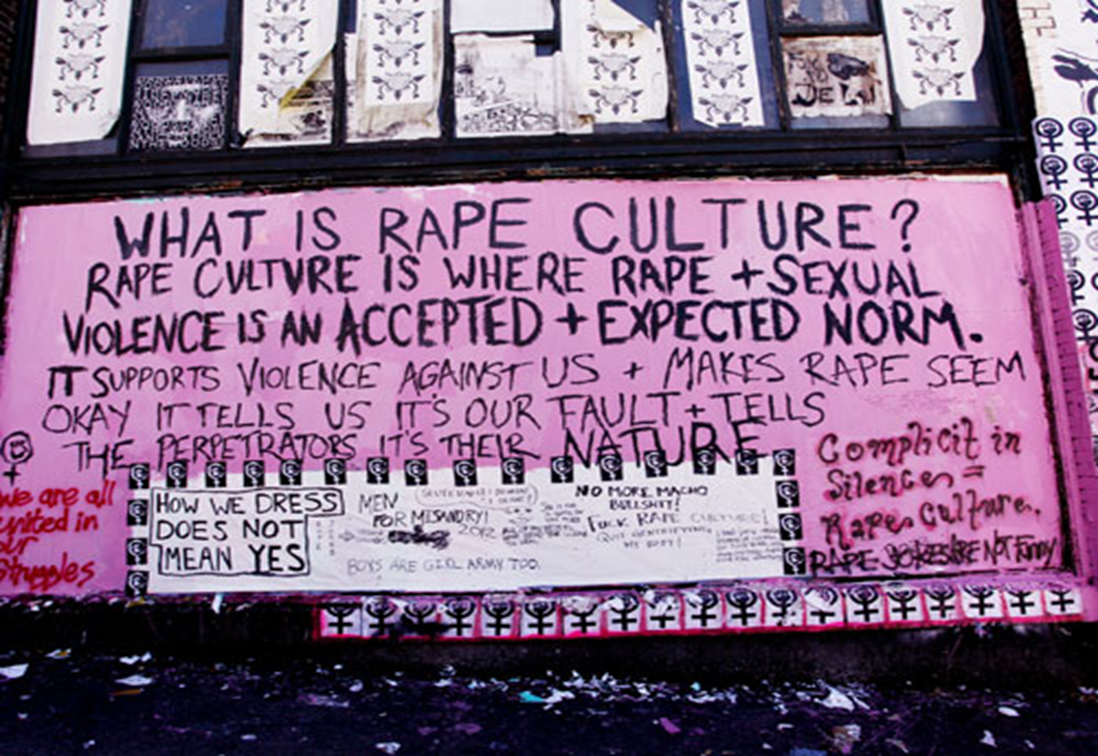 WHAT IS RAPE CULTURE?
RAPE CULTURE IS WHERE RAPE + SEXUAL
VIOLENCE IS AN ACCEPTED + EXPECTED NORM.
IT SUPPORTS VIOLENCE AGAINST US + MAKES RAPE SEEM
OKAY IT TELLS US IT'S OUR FAULT + TELLS
THE PERPETRATORS IT'S THEIR NATURE
we are all
united in
our
struggles
HOW WE DRESS
DOES NOT
MEAN YES
MEN
FOR MISANDRY!
2012
BOYS ARE GIRL ARMY TOO.
NO MORE MACHO
BULLSHIT!
FUCK RAPE CULTURE!
QUIT
MY BODY!
Complicit in
Silence =
Rape Culture.
RAPE JOKES ARE NOT FUNNY